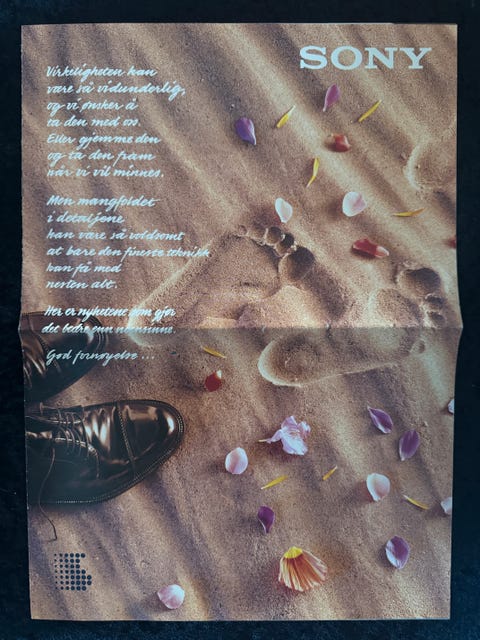 SONY
Virkeligheten kan
være så vidunderlig,
og vi ønsker å
ta den med oss.
Eller gjemme den
og ta den fram
når vi vil minnes.
Men mangfoldet
i detaljene
kan være så voldsomt
at bare den fineste teknikk
kan få med
nesten alt.
Her er nyhetene som gjør
det bedre enn noensinne.
God fornøyelse...